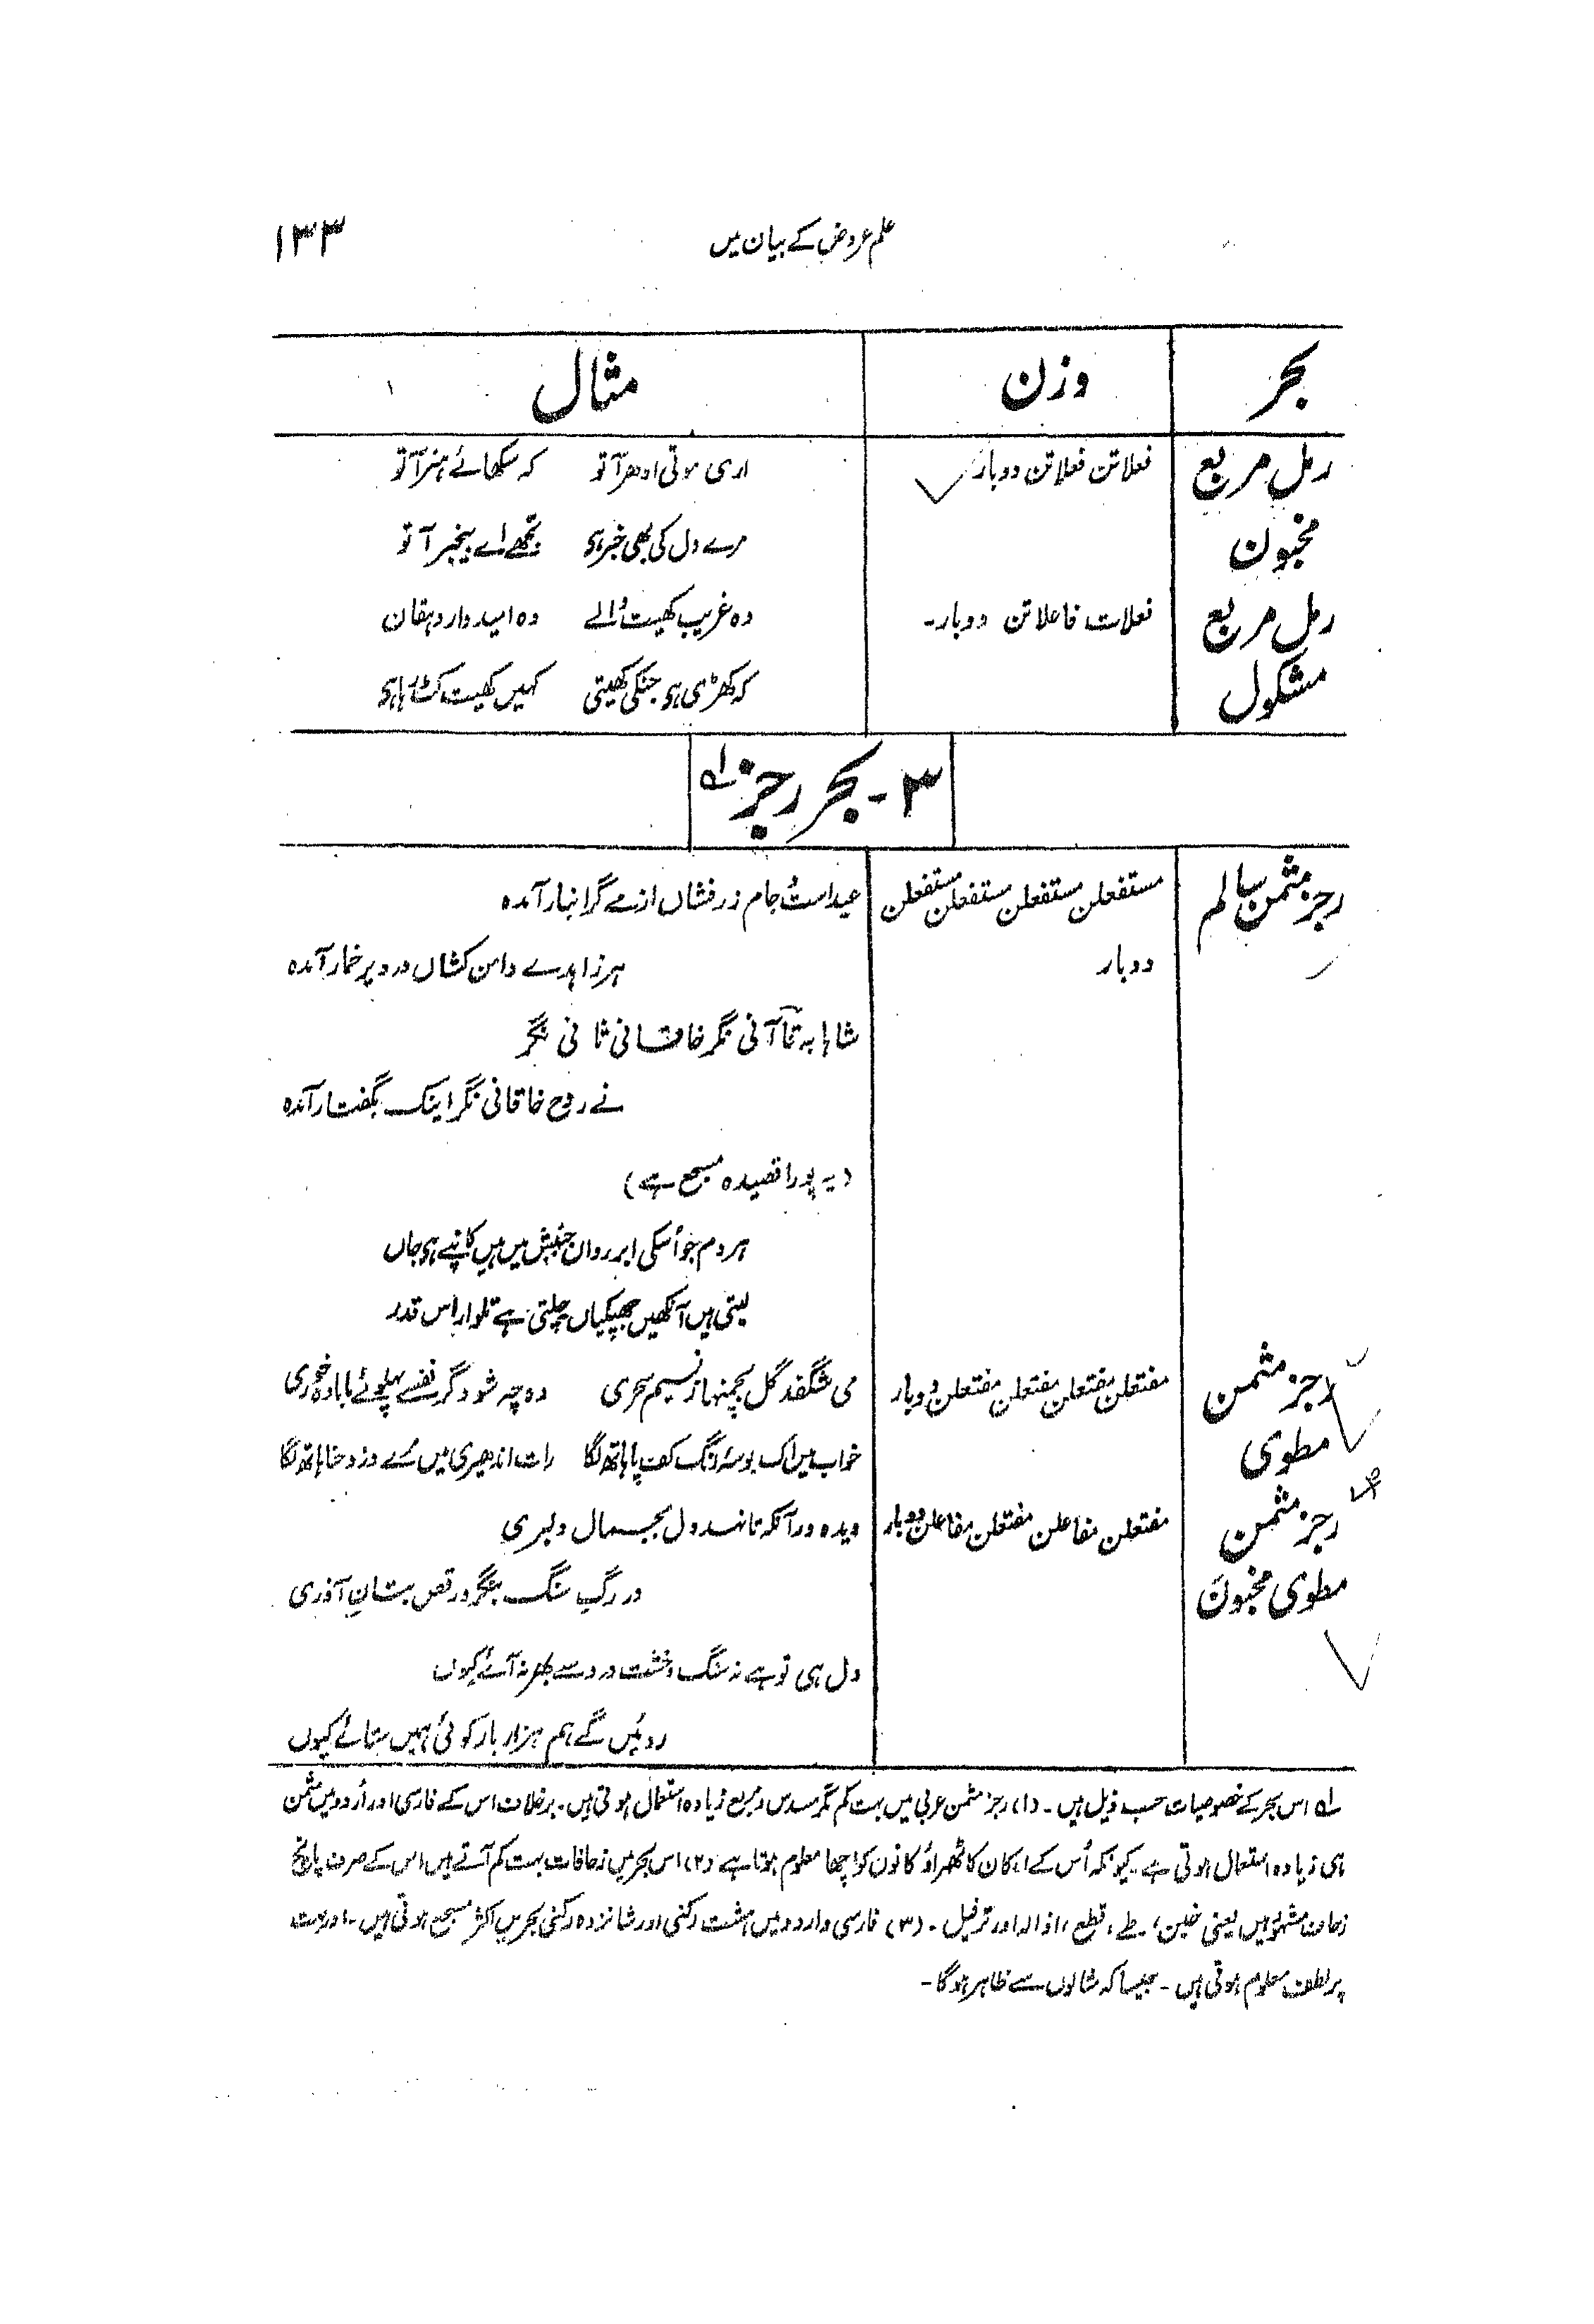 علم عروض کے بیان میں ۱۳۳
بحر وزن مثال
رمل مربع فعلاتن فعلاتن دوبار اری موتی ادھر آ تو کہ سکھائے ہنر آ تو
مخبون مرے دل کی بھی خبر ہی تجھے اے بیخبر آ تو
رمل مربع فعلات فاعلاتن دوبار۔ وہ غریب کھیت والے وہ امیدوار دہقان
مشکول کہ کھڑی ہو جنکی کھیتی کہیں کھیت کٹ رہا ہو
۳۔ بحر رجز لہ
رجز مثمن سالم مستفعلن مستفعلن مستفعلن مستفعلن عید است و جام زرفشاں از مے گرانبار آمدہ
دوبار ہر زاہدے دامن کشاں در دیر خمار آمدہ
شاہا بہ قاآنی نگر خاقانی ثانی نگر
نے روح خاقانی نگر اینک بگفتار آمدہ
(یہ پورا قصیدہ مسجع ہے)
ہر دم جو اُسکی ابر رواں جنبش میں ہیں کانپے ہو جاں
لیتی ہیں آنکھیں جھپکیاں چلتی ہے تلوار اس قدر
رجز مثمن مفتعلن مفتعلن مفتعلن مفتعلن دوبار می شگفد گل بچمنہا ز نسیم سحری وہ چہ شود گر نفسے پہلوئے ما بادہ خوری
مطوی خواب میں اک بوسۂ رنگ کف پا ہاتھ لگا رات اندھیری میں مرے دزد حنا ہاتھ لگا
رجز مثمن مفتعلن مفاعلن مفتعلن مفاعلن دوبار دیدہ ور آنکہ تا نہد دل بجمال دلبری
مطوی مخبون در رگِ سنگ بنگرد رقص بتانِ آذری
دل ہی تو ہے نہ سنگ و خشت درد سے بھر نہ آئے کیوں
روئیں گے ہم ہزار بار کوئی ہمیں ستائے کیوں
لہ اس بحر کے خصوصیات حسب ذیل ہیں۔ (۱) رجز مثمن عربی میں بہت کم مگر مسدس و مربع زیادہ استعمال ہوتی ہیں۔ برخلاف اس کے فارسی اور اُردو میں مثمن
ہی زیادہ استعمال ہوتی ہے۔ کیونکہ اُس کے ارکان کا ٹھہراؤ کانوں کو اچھا معلوم ہوتا ہے (۲) اس بحر میں زحافات بہت کم آتے ہیں اس کے صرف پانچ
زحاف مشہور ہیں یعنی خبن، طے، قطع، اذالہ اور ترفیل۔ (۳) فارسی و اردو میں ہشت رکنی اور شانزدہ رکنی بحریں اکثر مسجع ہوتی ہیں۔ اور بہت
پر لطف معلوم ہوتی ہیں۔ جیسا کہ مثالوں سے ظاہر ہوگا۔